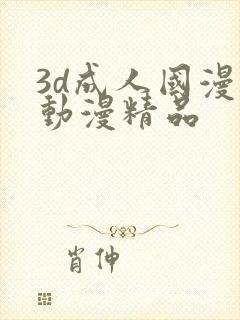 3d成人國漫
動漫精品
肖伸